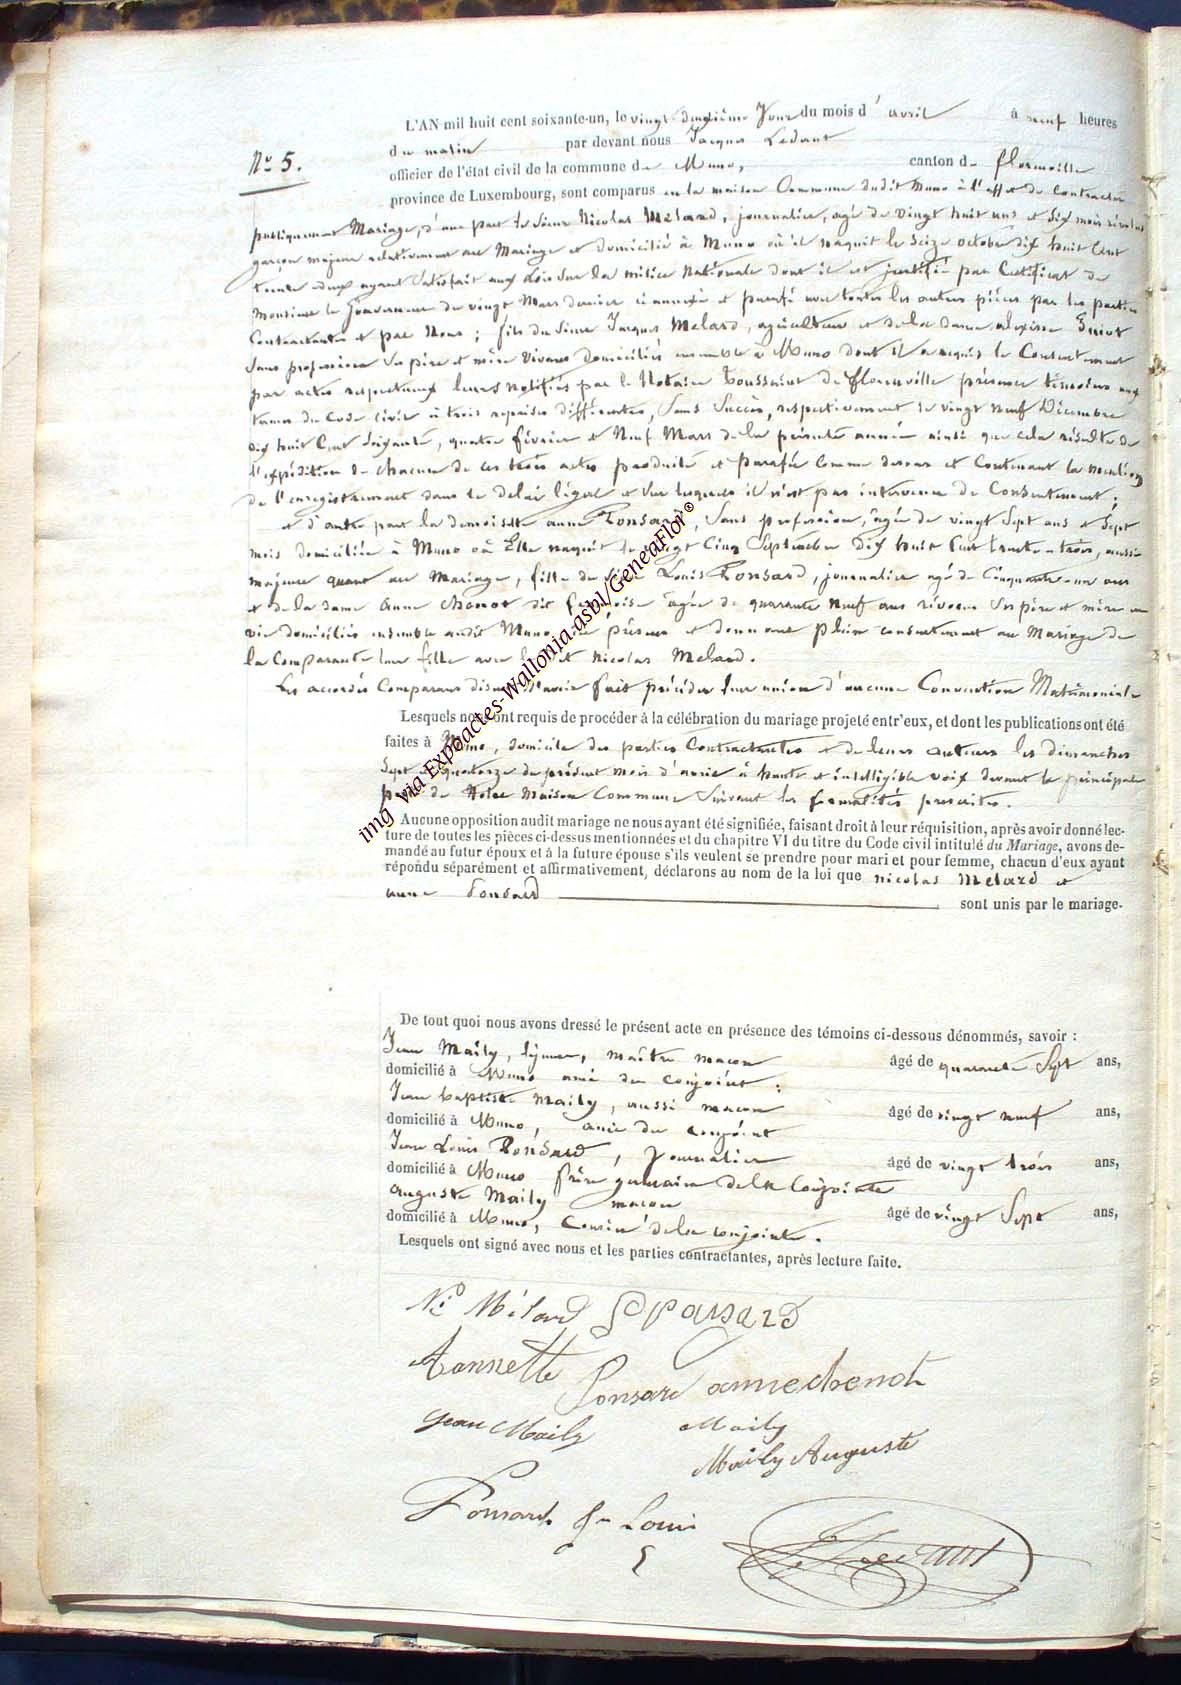 N° 5.
L'AN mil huit cent soixante-un, le vingt-deuxième jour du mois d'avril à neuf heures
du matin par devant nous Jacques Ledant
officier de l'état civil de la commune de Muno, canton de florenville
province de Luxembourg, sont comparus en la maison Commune dudit Muno à l'effet de contracter
publiquement Mariage, d'une part le sieur Nicolas Melard, journalier, agé de vingt huit ans et six mois révolus
garçon majeur relativement au Mariage et domicilié à Muno où il naquit le seize octobre dix huit Cent
trente deux ayant satisfait aux lois sur la milice Nationale dont il est justifié par Certificat de
Monsieur le Gouverneur du vingt Mars dernier ci annexé et parafé avec toutes les autres pièces par les parties
Contractantes et par Nous ; fils du sieur Jacques Melard, agriculteur et de la dame Guiot
sans profession ses père et mère vivans domiciliés ensemble à Muno dont il a requis le Consentement
par actes respectueux leurs notifiés par le Notaire Toussaint de florenville présence témoins aux
termes du Code Civil à trois reprises différentes, sans succès, respectivement le vingt neuf Décembre
dix huit Cent soixante, quatre février et Neuf Mars de la présente année ainsi que cela résulte de
l'expédition de chacun de ces trois actes produite et parafée comme dessus et Contenant la mention
de l'enregistrement dans le délai légal et sur lesquels il n'est pas intervenu de Consentement ;
et d'autre part la demoiselle anne Ponsard, sans profession, âgée de vingt sept ans et sept
mois domiciliée à Muno où Elle naquit le vingt Cinq Septembre dix huit Cent trente trois, aussi
majeure quant au Mariage, fille du sieur Louis Ponsard, journalier agé de Cinquante-un ans
et de la dame Anne chenot dit françoise âgée de quarante neuf ans révolus ses père et mère en
vie domiciliés ensemble audit Muno ici présens et donnant plein consentement au Mariage de
la Comparante leur fille avec ledit Nicolas Melard.
Les accordés Comparans disent n'avoir fait précéder leur union d'aucune Convention Matrimoniale
Lesquels nous ont requis de procéder à la célébration du mariage projeté entr'eux, et dont les publications ont été
faites à Muno, domicile des parties Contractantes et de leurs auteurs les dimanches
sept et quatorze du présent mois d'avril à haute et intelligible voix devant la principale
porte de Notre Maison Commune suivant les formalités prescrites.
Aucune opposition audit mariage ne nous ayant été signifiée, faisant droit à leur réquisition, après avoir donné lec-
ture de toutes les pièces ci-dessus mentionnées et du chapitre VI du titre du Code civil intitulé du Mariage, avons de-
mandé au futur époux et à la future épouse s'ils veulent se prendre pour mari et pour femme, chacun d'eux ayant
répondu séparément et affirmativement, déclarons au nom de la loi que nicolas Melard et
anne Ponsard sont unis par le mariage.
De tout quoi nous avons dressé le présent acte en présence des témoins ci-dessous dénommés, savoir :
Jean Maily, maître macon âgé de quarante sept ans,
domicilié à Muno ami du conjoint ;
Jean baptiste Maily, aussi macon âgé de vingt neuf ans,
domicilié à Muno, ami du conjoint
Jean Louis Ponsard, Journalier âgé de vingt trois ans,
domicilié à Muno frère germain de la Conjointe
auguste Maily macon âgé de vingt sept ans,
domicilié à Muno, Cousin de la conjointe.
Lesquels ont signé avec nous et les parties contractantes, après lecture faite.
Ni Mélard
Annette Ponsard anne chenot
Jean Maily Maily
Maily Auguste
Ponsard Jn Louis
J Ledant
img via Expoactes-Wallonia-asbl/GeneaFlor®